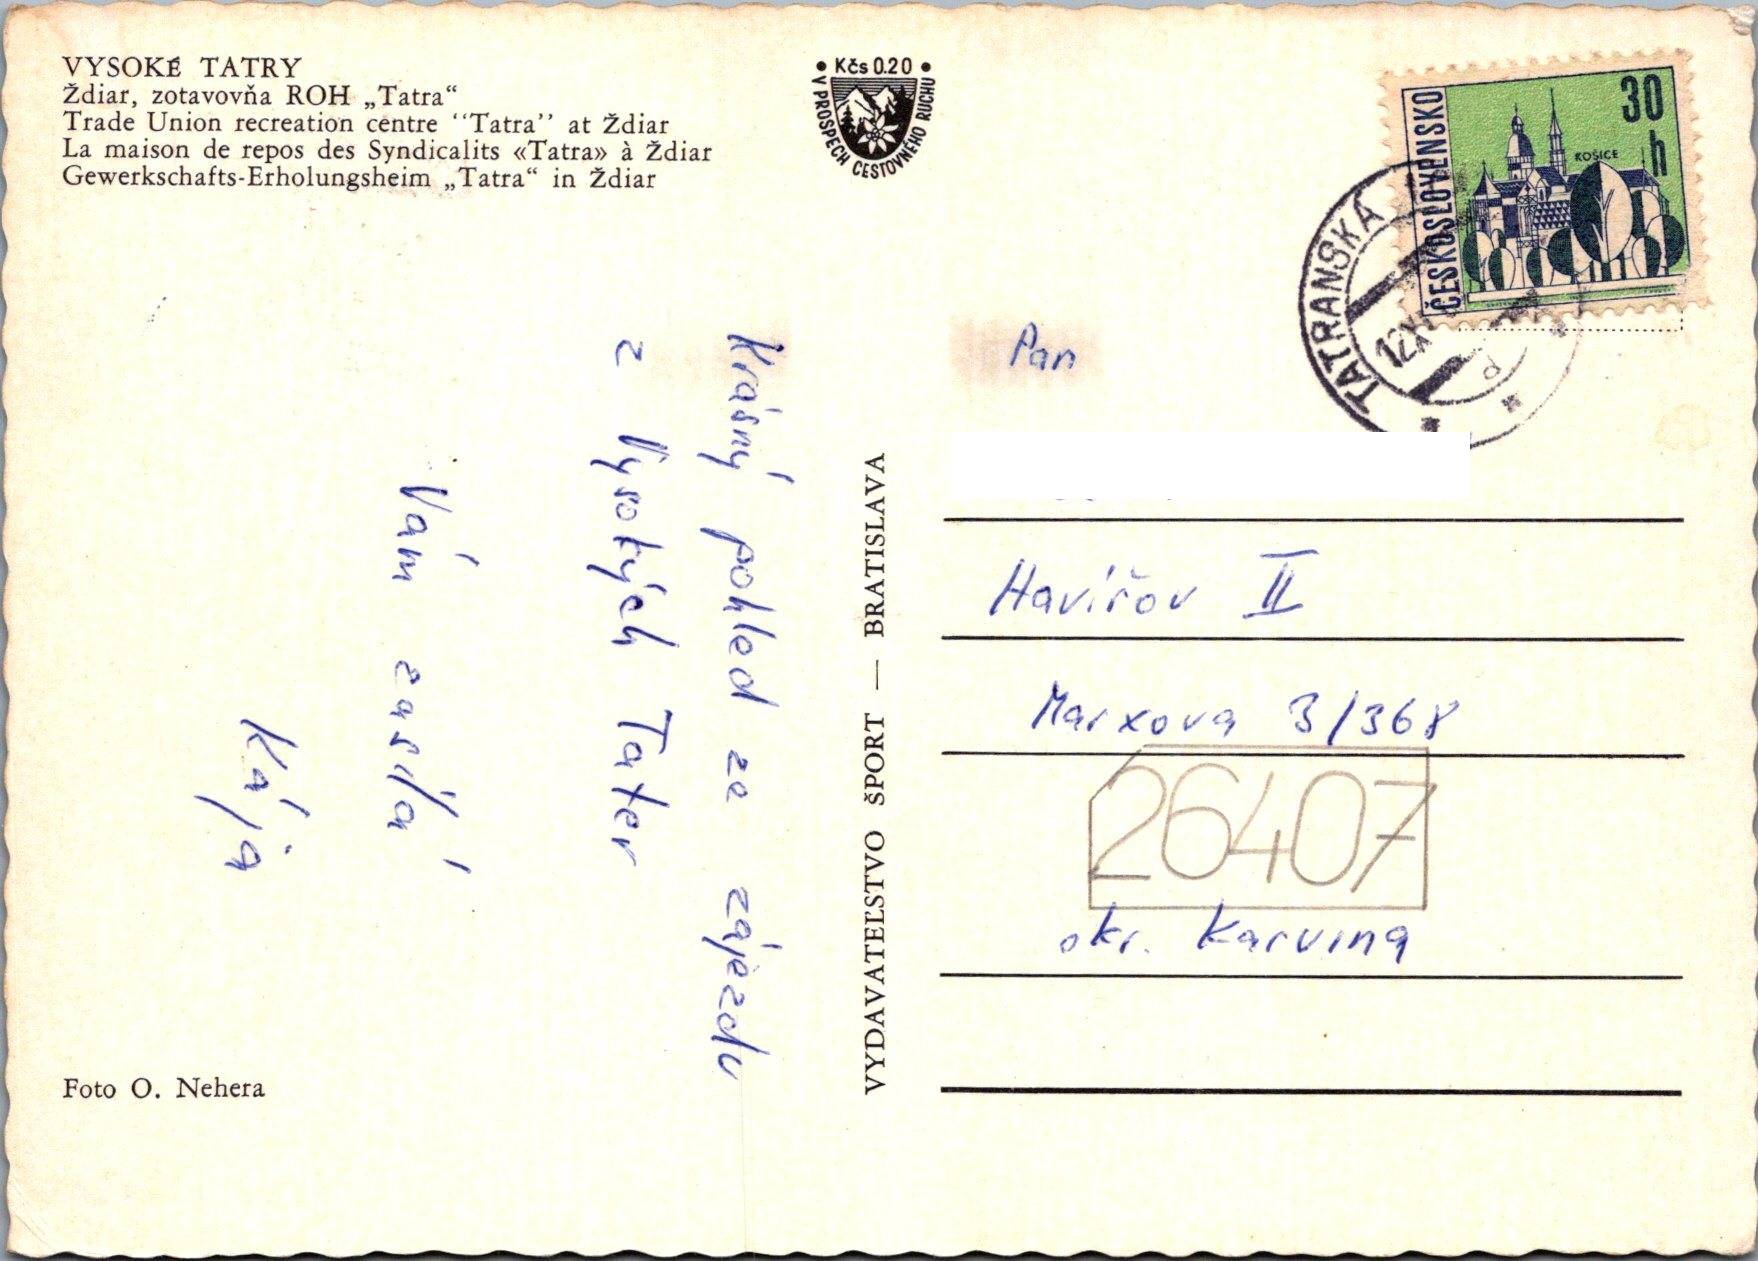 VYSOKÉ TATRY
Ždiar, zotavovňa ROH „Tatra“
Trade Union recreation centre ‘‘Tatra’’ at Ždiar
La maison de repos des Syndicalits «Tatra» à Ždiar
Gewerkschafts-Erholungsheim „Tatra“ in Ždiar
• Kčs 0.20 •
V PROSPECH CESTOVNÉHO RUCHU
ČESKOSLOVENSKO
30 h
KOŠICE
TATRANSKÁ
12.XI
Krásný pohled ze zájezdu
z Vysokých Tater
Vám zasílá
Kája
VYDAVATEĽSTVO ŠPORT — BRATISLAVA
Pan
Havířov II
Marxova 3/368
26407
okr. Karvina
Foto O. Nehera